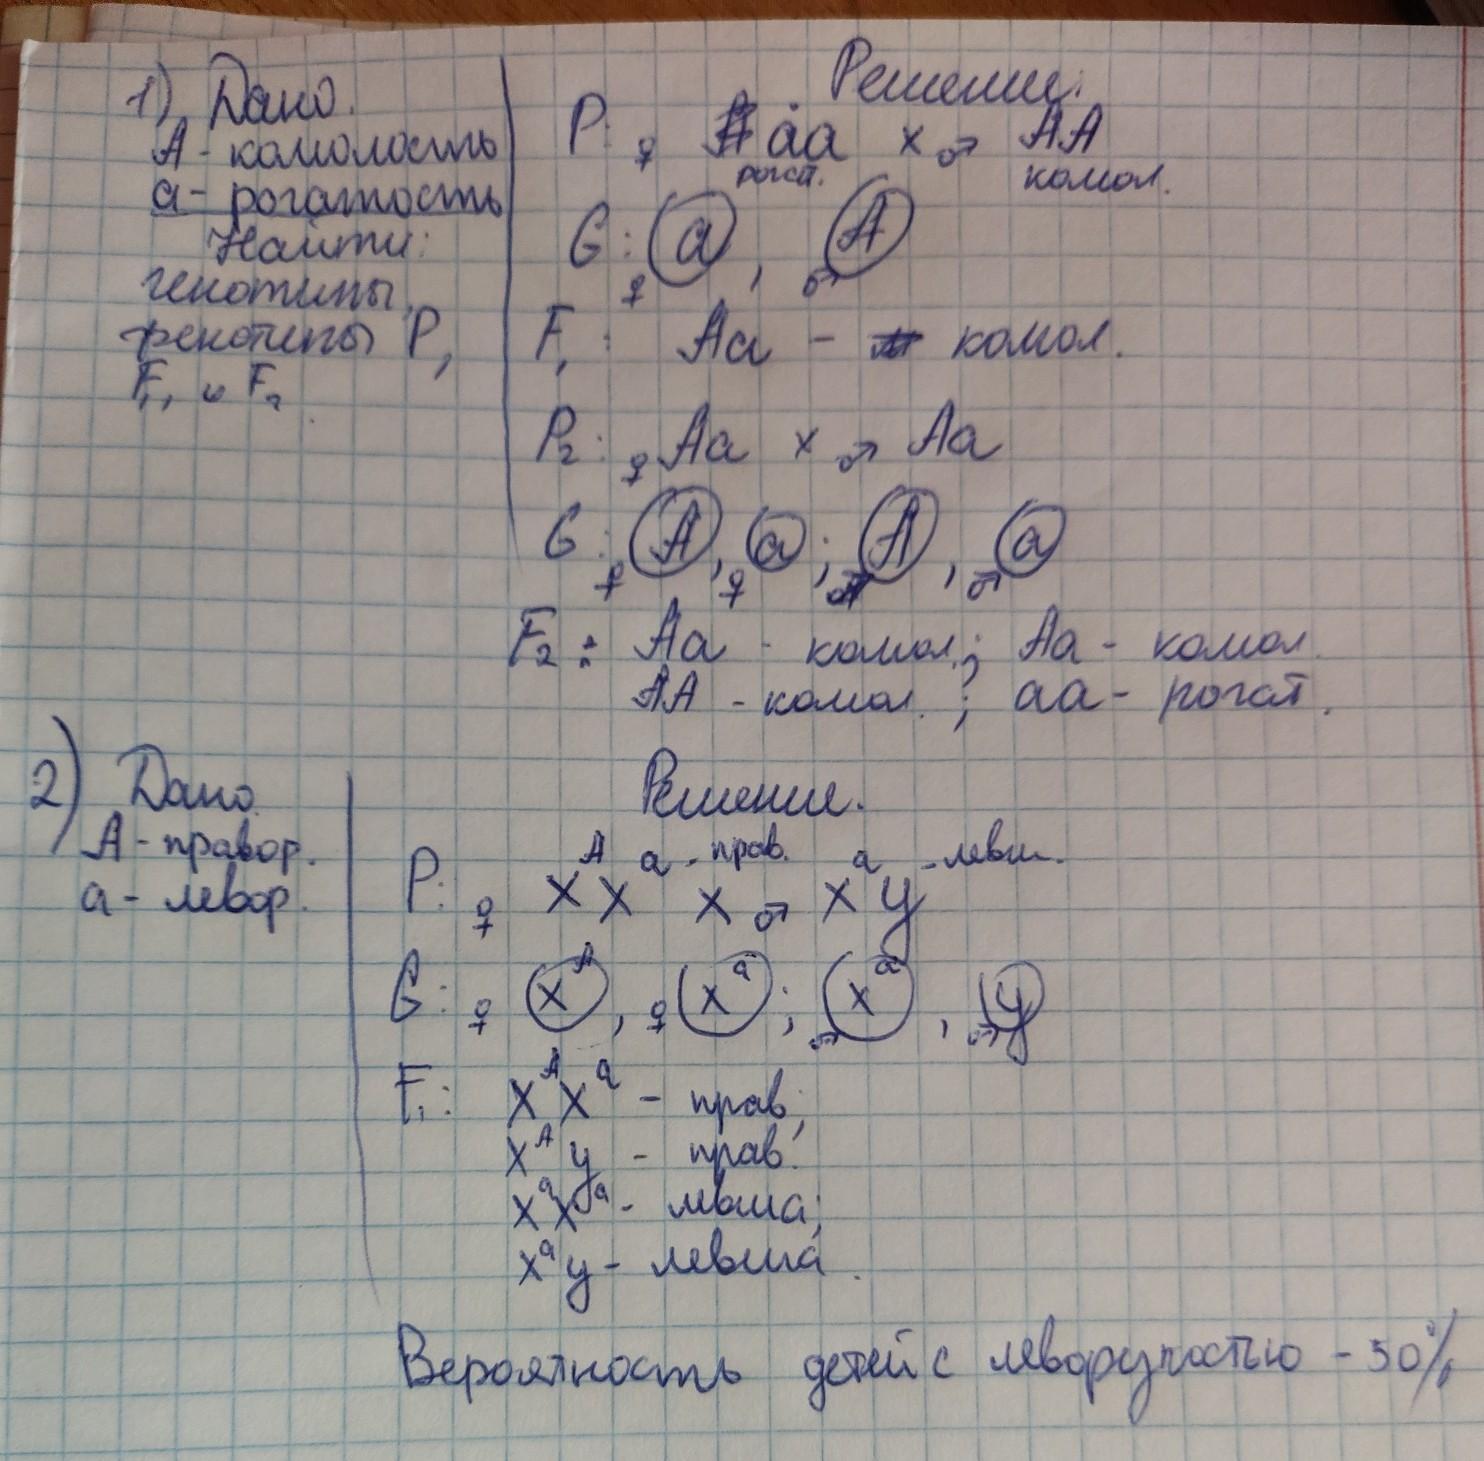 1) Дано.
А - комолость
а - рогатость
Найти:
генотипы,
фенотипы Р,
F₁, и F₂
Решение.
Р: ♀ аа х ♂ АА
рогат. комол.
G: ♀ а, ♂ А
F₁: Аа - комол.
Р₂: ♀ Аа х ♂ Аа
G: ♀ А, ♀ а; ♂ А, ♂ а
F₂: Аа - комол.; Аа - комол.
АА - комол.; аа - рогат.
2) Дано.
А - правор.
а - левор.
Решение.
Р: ♀ XᴬXᵃ - прав. х ♂ Xᵃy - левш.
G: ♀ Xᴬ, ♀ Xᵃ; ♂ Xᵃ, ♂ y
F₁: XᴬXᵃ - прав;
Xᴬy - прав.
XᵃXᵃ - левша;
Xᵃy - левша.
Вероятность детей с леворукостью - 50%